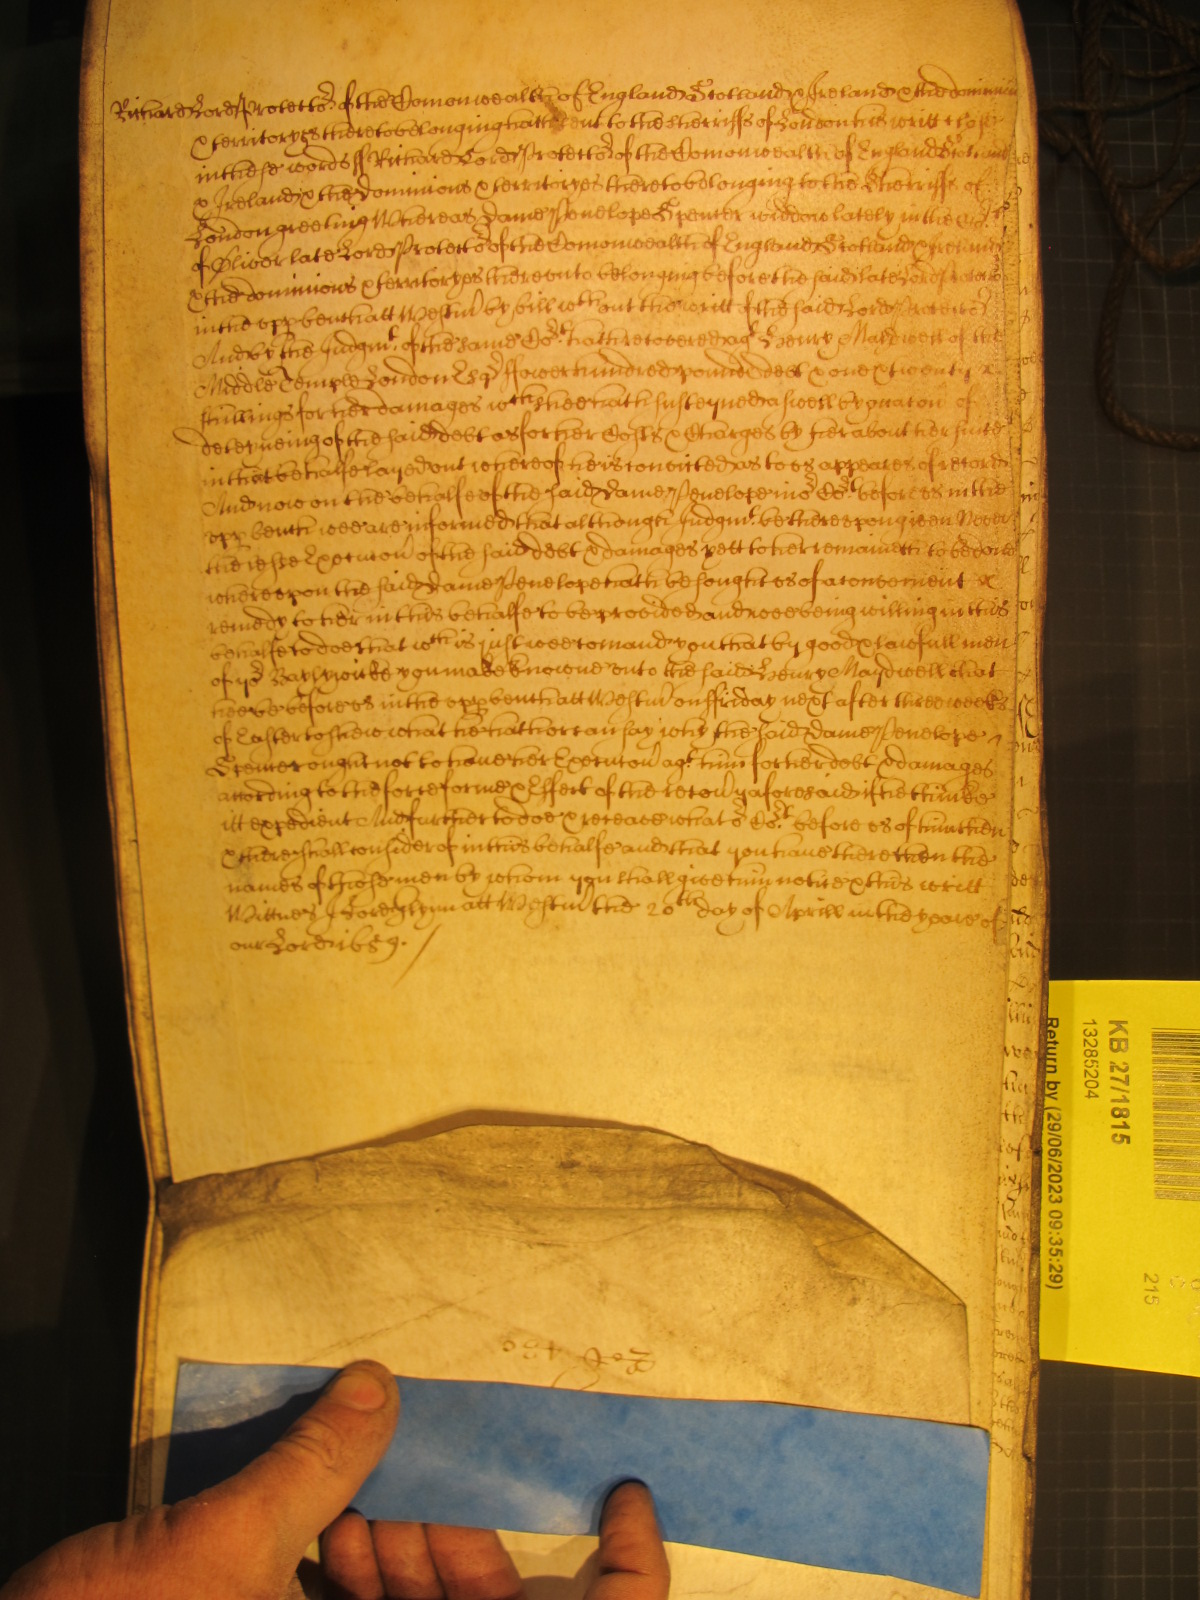 Richard Lord Protector of the Comonwealth of England Scotland & Ireland & the dominions
& territoryes thereto belonging hath sent to the Sherriffs of London his writt close
in these words ss Richard Lord Protector of the Comonwealth of England Scotland
& Ireland & the Dominions & territoryes thereto belonging to the Sherriffs of
London greeting Whereas Dame Penelope Spencer widdow lately in the Cort
of Oliver late Lord Protector of the Comonwealth of England Scotland & Ireland
& the dominions & territoryes thereunto belonging before the said late Lord Protector
in the upp bench att Westmr by bill wthout the writt of the said Lord Protector
And by the Judgmt of the same Cort hath recovered agt Henry Maydwell of the
Middle Temple London Esqr ffower hundred pounds debt & one & twenty
shillings for her damages wch shee hath susteyned aswell by reason of
deteyneing of the said debt as for her Costs & Charges by her about her suite
in that behalfe layed out whereof he is convicted as to us appeares of record
And now on the behalfe of the said Dame Penelope in or Cort before us in the
upp bench wee are informed that although Judgmt be thereupon given Never
thelesse Execucon of the said debt & damages yett to her remaineth to be done
whereupon the said Dame Penelope hath besought us of a convenient
remedy to her in this behalfe to be provided and wee being willing in this
behalfe to doe that wch is just wee comand you that by good & lawfull men
of yor Baylywicke you make knowne unto the said Henry Maydwell that
hee be before us in the upp bench att Westmr on ffriday next after three weeks
of Easter to shew what hee hath or can say why the said Dame Penelope
Spencer ought not to have her Execucon agt him for her debt & damages
according to the force forme & Effect of the recovy aforesaid if he thinke
itt expedient And further to doe & receave what or Cort before us of him then
& there shall consider of in this behalfe and that you have there then the
names of those men by whom you shall give him notice & this writt
Wittnes J Lord Glynn att Westmr the 20th day of Aprill in the yeare of
our Lord 1659.
KB 27/1815
13285204
Return by (29/06/2023 09:35:29)
215